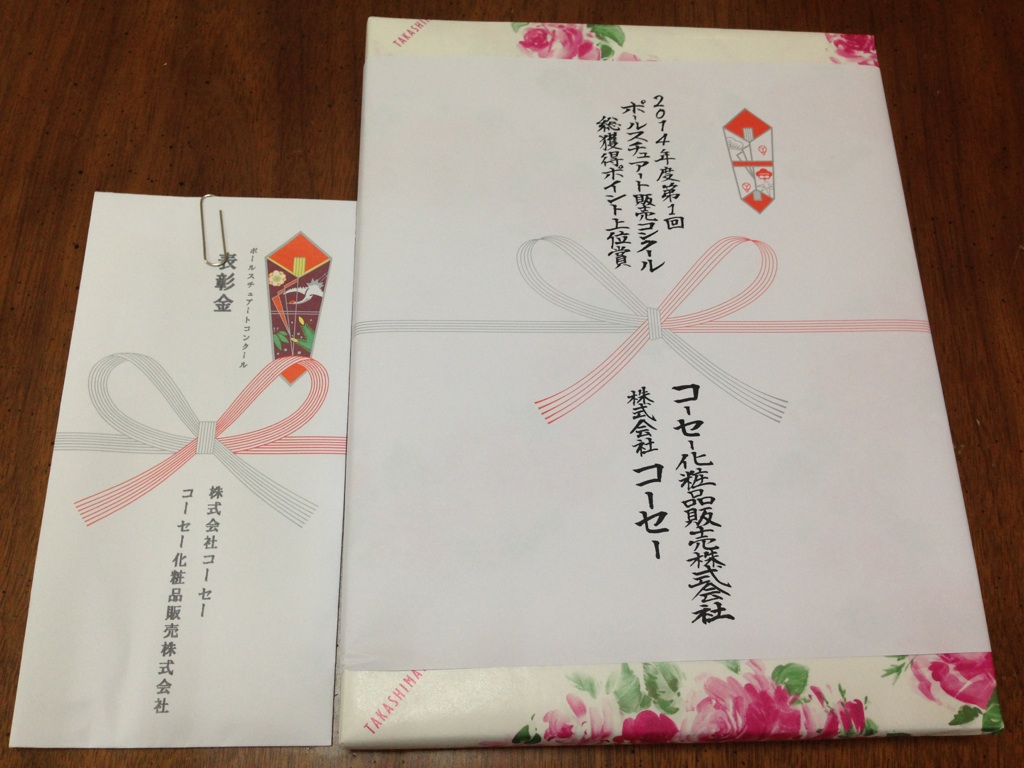 ポールスチュアートコンクール
表彰金
株式会社コーセー
コーセー化粧品販売株式会社
TAKASHIM
2014年度第1回
ポールスチュアート販売コンクール
総獲得ポイント上位賞
コーセー化粧品販売株式会社
株式会社 コーセー
TAKASHIMA